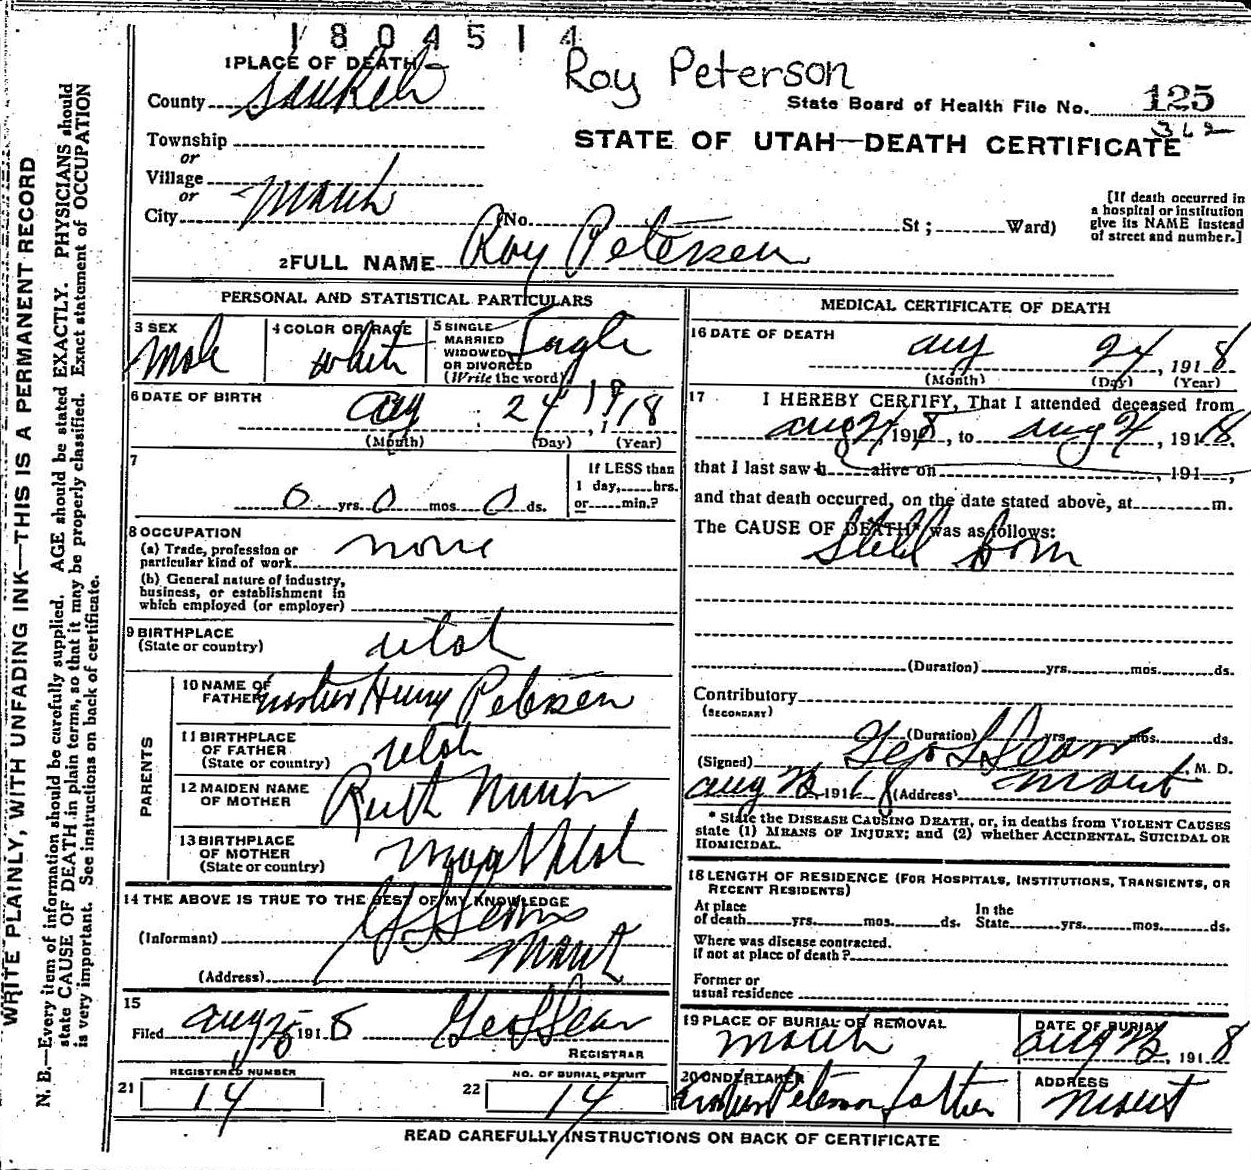 1804514
Roy Peterson
1 PLACE OF DEATH
County
State Board of Health File No. 125
362
Township
or
Village
or
City
STATE OF UTAH—DEATH CERTIFICATE
(No. St; Ward)
[If death occurred in
a hospital or institution
give its NAME instead
of street and number.]
2 FULL NAME Roy Petersen
PERSONAL AND STATISTICAL PARTICULARS
3 SEX
Male
4 COLOR OR RACE
white
5 SINGLE
MARRIED
WIDOWED
OR DIVORCED
(Write the word)
Single
6 DATE OF BIRTH
Aug 24 1918
(Month) (Day) (Year)
7
0 yrs. 0 mos. 0 ds.
If LESS than
1 day, hrs.
or min.?
8 OCCUPATION
(a) Trade, profession or
particular kind of work none
(b) General nature of industry,
business, or establishment in
which employed (or employer)
9 BIRTHPLACE
(State or country) Utah
PARENTS
10 NAME OF
FATHER Henry Petersen
11 BIRTHPLACE
OF FATHER
(State or country) Utah
12 MAIDEN NAME
OF MOTHER Ruth
13 BIRTHPLACE
OF MOTHER
(State or country) Utah
14 THE ABOVE IS TRUE TO THE BEST OF MY KNOWLEDGE
(Informant)
(Address)
15
Filed Aug 25 1918 Geo
REGISTRAR
REGISTERED NUMBER
21 14
NO. OF BURIAL PERMIT
22 14
MEDICAL CERTIFICATE OF DEATH
16 DATE OF DEATH
Aug 24, 1918
(Month) (Day) (Year)
17 I HEREBY CERTIFY, That I attended deceased from
Aug 24, 1918, to Aug 24, 1918,
that I last saw h alive on , 191 ,
and that death occurred, on the date stated above, at m.
The CAUSE OF DEATH* was as follows:
Still born
(Duration) yrs. mos. ds.
Contributory
(SECONDARY)
(Duration) yrs. mos. ds.
(Signed) Geo , M. D.
Aug , 1918 (Address)
* State the DISEASE CAUSING DEATH, or, in deaths from VIOLENT CAUSES
state (1) MEANS OF INJURY; and (2) whether ACCIDENTAL, SUICIDAL OR
HOMICIDAL.
18 LENGTH OF RESIDENCE (FOR HOSPITALS, INSTITUTIONS, TRANSIENTS, OR
RECENT RESIDENTS)
At place
of death yrs. mos. ds.
In the
State yrs. mos. ds.
Where was disease contracted.
if not at place of death?
Former or
usual residence
19 PLACE OF BURIAL OR REMOVAL
DATE OF BURIAL
Aug , 1918
20 UNDERTAKER
Peterson father
ADDRESS
READ CAREFULLY INSTRUCTIONS ON BACK OF CERTIFICATE
WRITE PLAINLY, WITH UNFADING INK—THIS IS A PERMANENT RECORD
N. B.—Every item of information should be carefully supplied. AGE should be stated EXACTLY. PHYSICIANS should
state CAUSE OF DEATH in plain terms, so that it may be properly classified. Exact statement of OCCUPATION
is very important. See instructions on back of certificate.